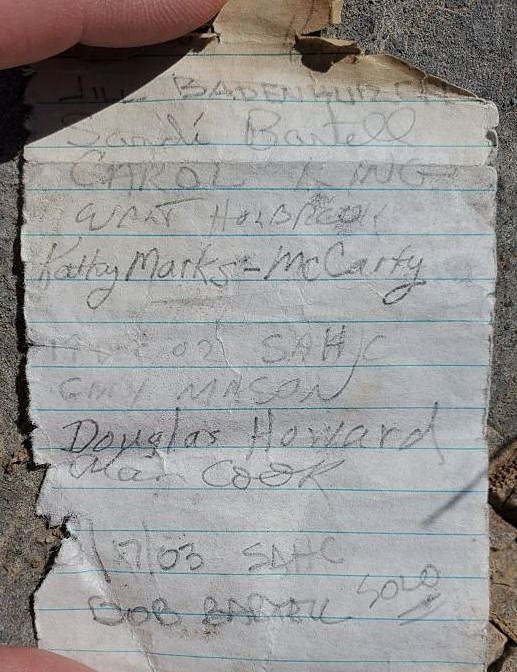 JILL BADENHUIZEN
Sandi Bartell
CAROL KING
WALT HOLBROOK
Kathy Marks-McCarty
02 SAHC
GARY MASON
Douglas Howard
Alan COOK
/03 SAHC
BOB BARTELL SOLO